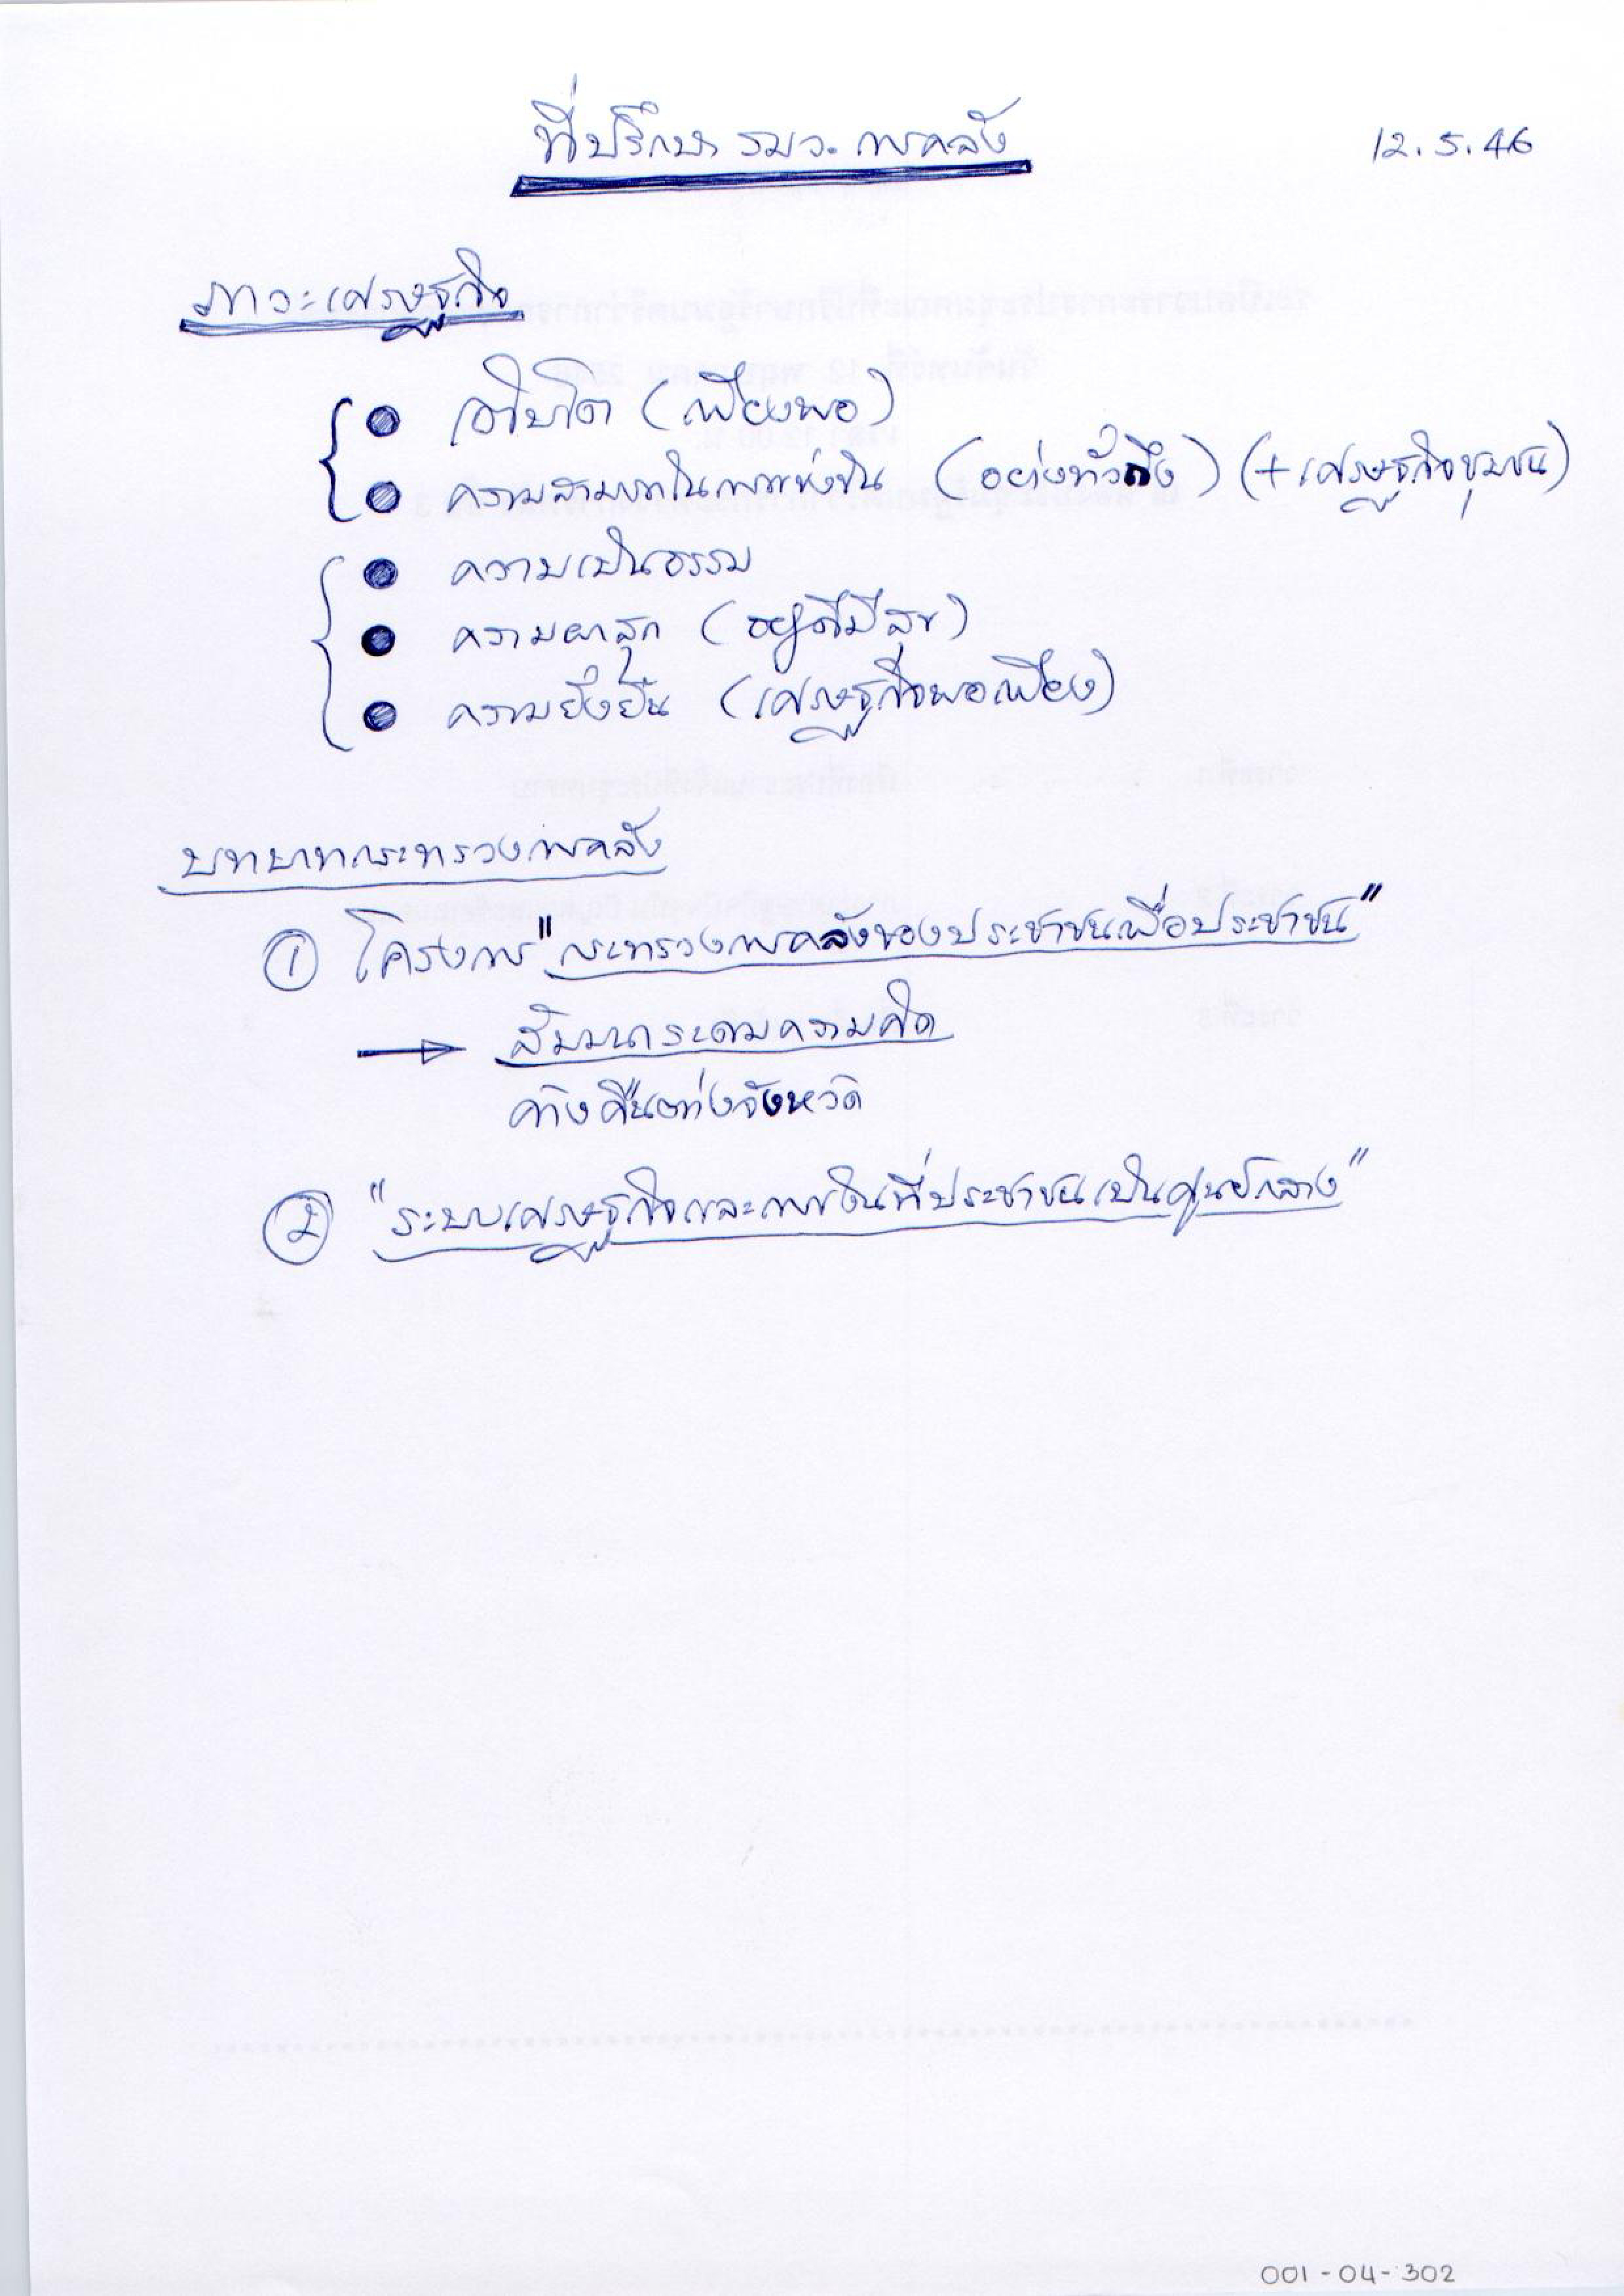 ที่ปรึกษา รมว. การคลัง
12.5.46
ภาวะเศรษฐกิจ
เติบโต (เพียงพอ)
ความสามารถในการแข่งขัน (อย่างทั่วถึง) (+เศรษฐกิจชุมชน)
ความเป็นธรรม
ความผาสุก (อยู่ดีมีสุข)
ความยั่งยืน (เศรษฐกิจพอเพียง)
บทบาทกระทรวงการคลัง
① โครงการ "กระทรวงการคลังของประชาชนเพื่อประชาชน"
→ สัมมนาระดมความคิด
ค้างคืนต่างจังหวัด
② "ระบบเศรษฐกิจและการเงินที่ประชาชนเป็นศูนย์กลาง"
001-04-302